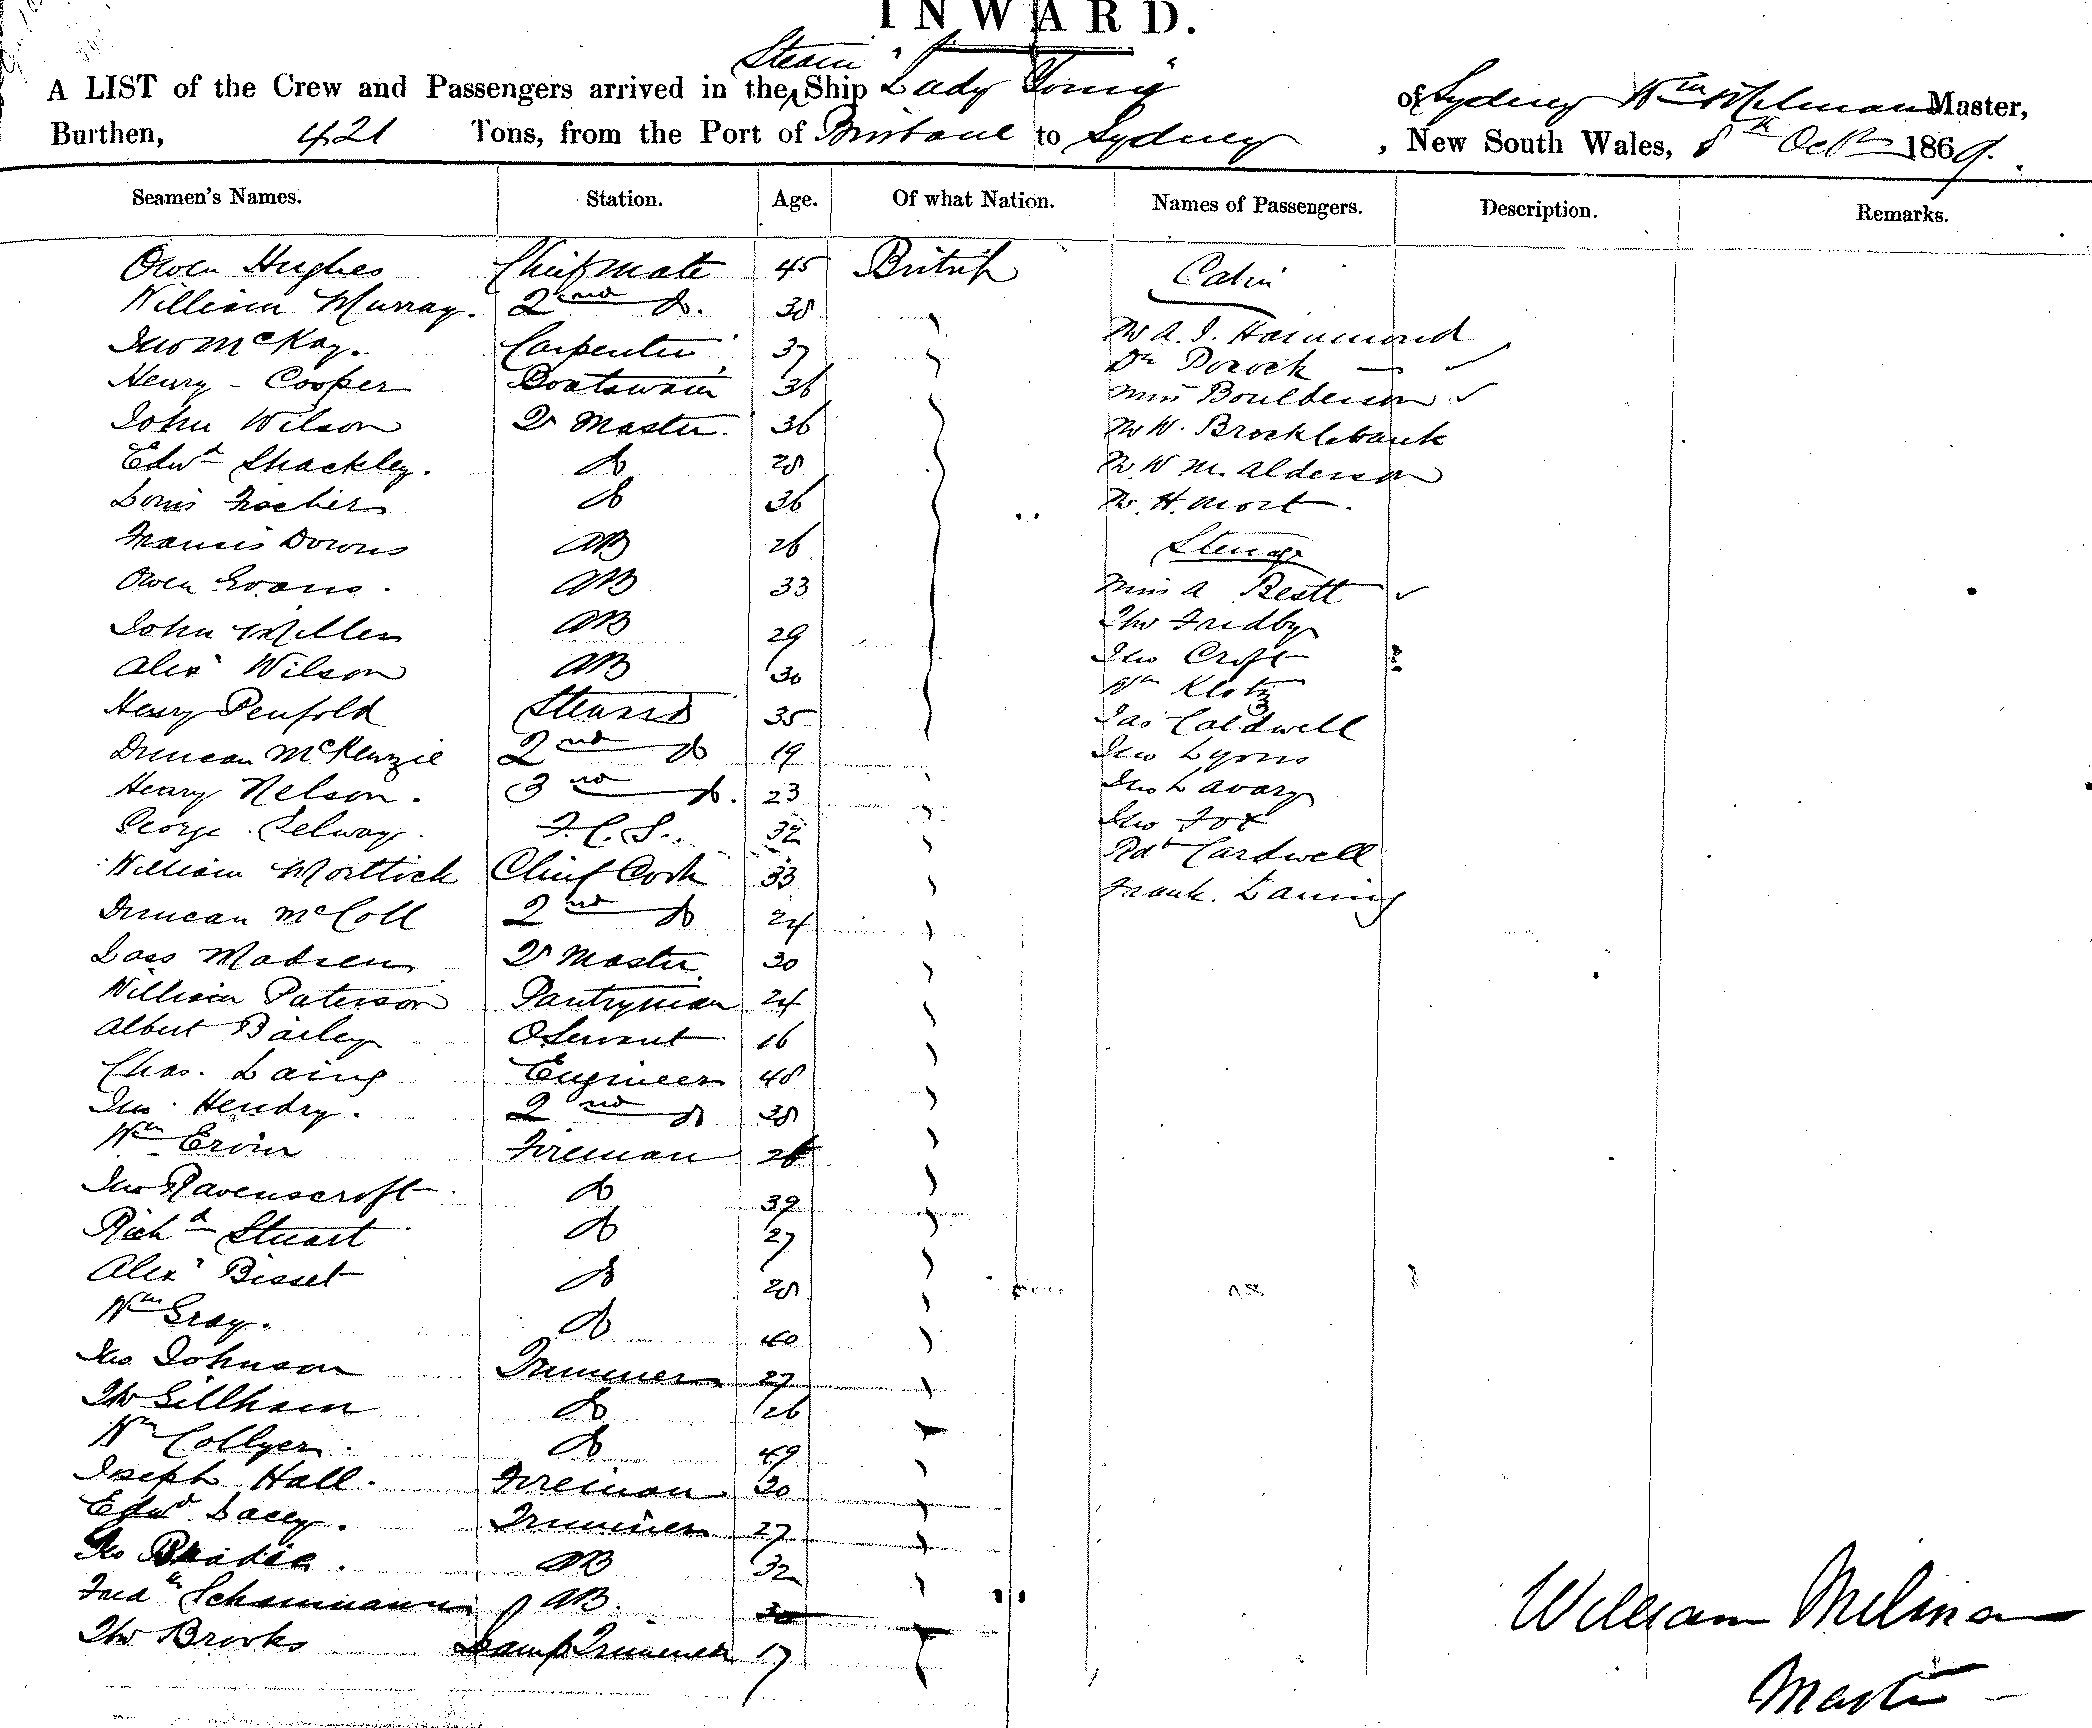 INWARD.
A LIST of the Crew and Passengers arrived in the Steam Ship "Lady Young" of Sydney Wm Milman Master,
Burthen, 421 Tons, from the Port of Brisbane to Sydney, New South Wales, 8th Octr 1869.
Seamen's Names. Station. Age. Of what Nation. Names of Passengers. Description. Remarks.
Owen Hughes Chief Mate 45 British Cabin
William Murray. 2nd Do. 38
Jno McKay. Carpenter 37 Mr A. J. Hammond
Henry Cooper Boatswain 36 Dr Pocock
John Wilson Qr Master 36 Miss Boulderson
Edwd Shackley. Do 28 Mr W. Brocklebank
Louis Do 36 Mr W M. Alderson
Francis Downs AB 26 Mr. H. Mort.
Owen Evans. AB 33 Steerage
John Miller AB 29 Miss A Bestt
Alexr Wilson AB 30 Tho Fridby
Henry Penfold Steward 35 Jno Croft
Duncan McKenzie 2nd Do 19 Wm Klotz
Henry Nelson. 3rd Do. 23 Jas Caldwell
George Selway. F.C.S. 32 Jno Lyons
William Mortlock Chief Cook 33 Jno Lavary
Duncan McColl 2nd Do 24 Jno Fox
Lass Madsen Qr Master 30 Rdt Cardwell
William Paterson Pantryman 24 Frank. Laning
Albert Bailey OServant 16
Chas. Laing Engineer 48
Jno. Hendry. 2nd Do 38
Wm Ervin Fireman 26
Jno Ravenscroft Do 39
Richd Stuart Do 27
Alexr Bisset Do 28
Wm Gray. Do 40
Jno Johnson Trimmer 27
Tho Gillham Do 26
Wm Collyer. Do 49
Joseph Hall. Fireman 30
Edwd Lacey. Trimmer 27
Jno AB 32
Fredk Schumann AB. 30
Tho Brooks Lamp Trimmer 17
William Milman
Master